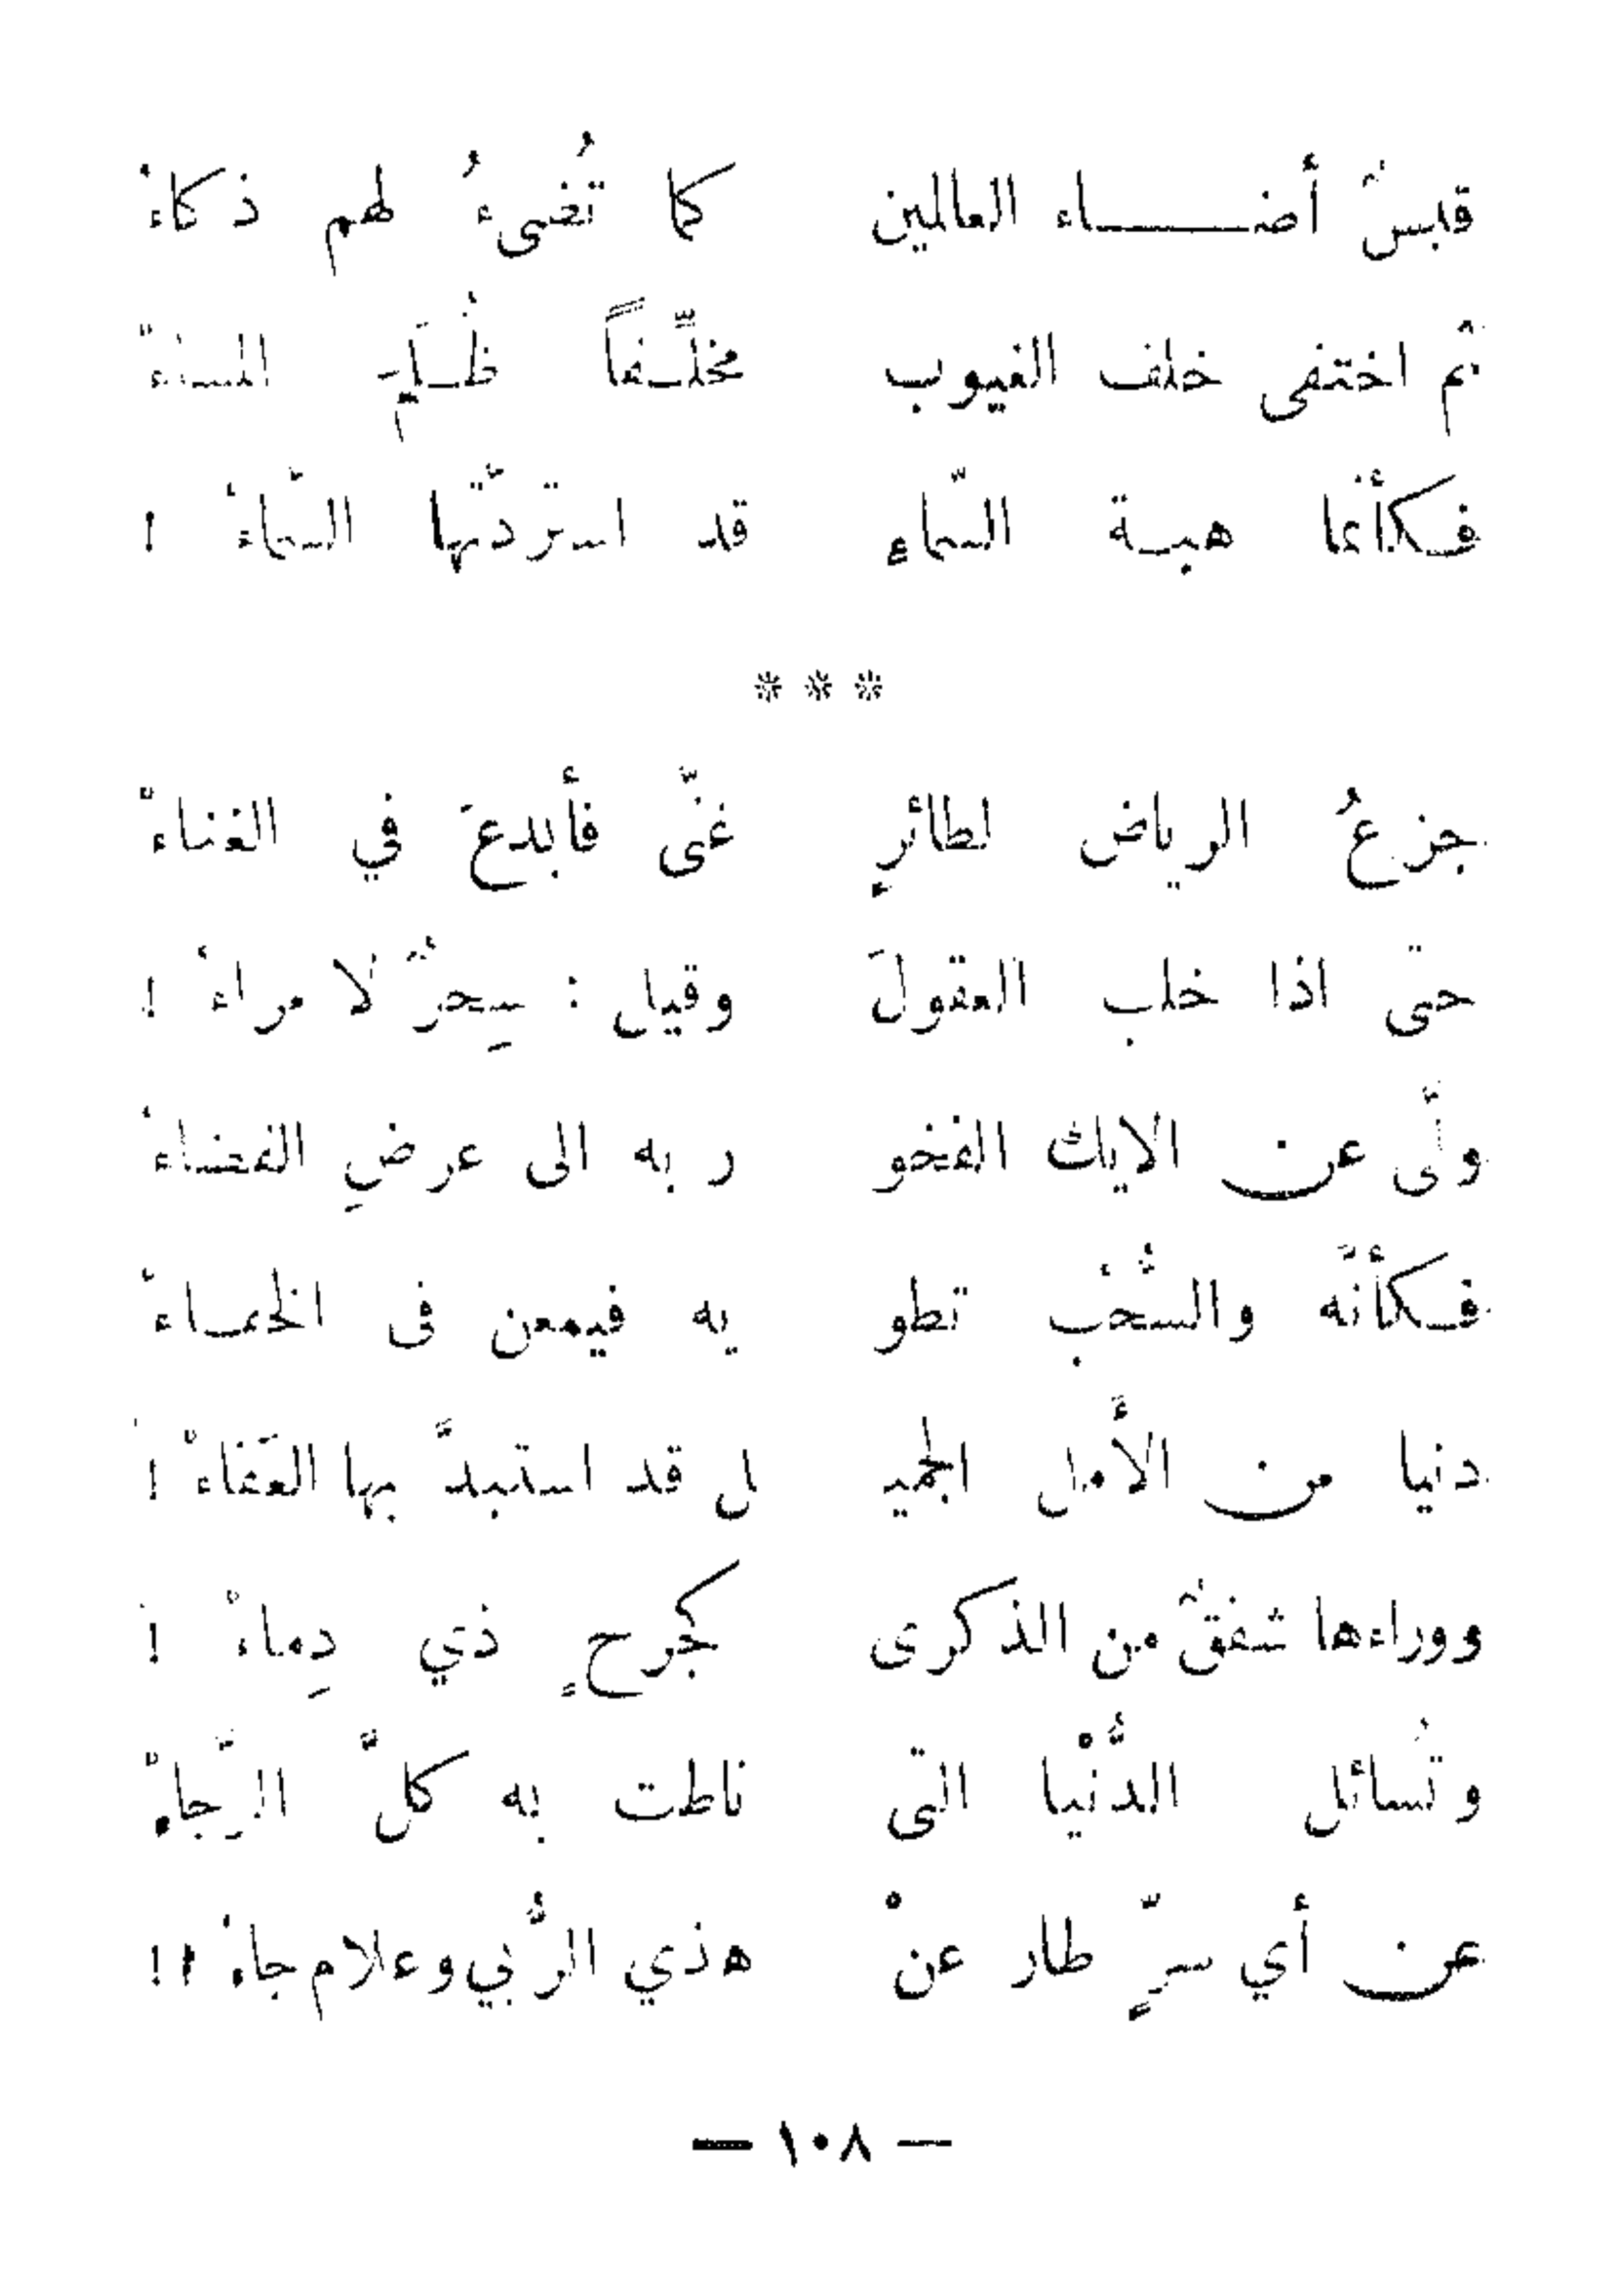 قبسٌ أضـــــاء العالمين كما تُضيءُ لهم ذكاءْ
ثم اختفى خلف الغيوب مخلِّـفاً ظُـلَمَ المساءْ
فكأنما هبة السّماءِ قد استردّتها السّماءْ !
* * *
جزعُ الرياض لطائرٍ غنّى فأبدعَ في الغناءْ
حتى اذا خلب العقولَ وقيل : سِحرٌ لا مراءْ !
ولّى عن الايك الفخو ر به الى عرضِ الفضاءْ
فكأنّه والسُّحْب تطو يه فيمعن في الخفاءْ
دنيا من الأَمل الجميـ ل قد استبدَّ بها العَفاءْ !
ووراءها شفقٌ من الذكرى كجرحٍ ذي دِماءْ !
وتُسائل الدُّنْيا التي ناطت به كلَّ الرَّجاءْ
عن أي سرٍّ طار عنْ هذي الرُّبي وعلام جاءْ !!
— ١٠٨ —